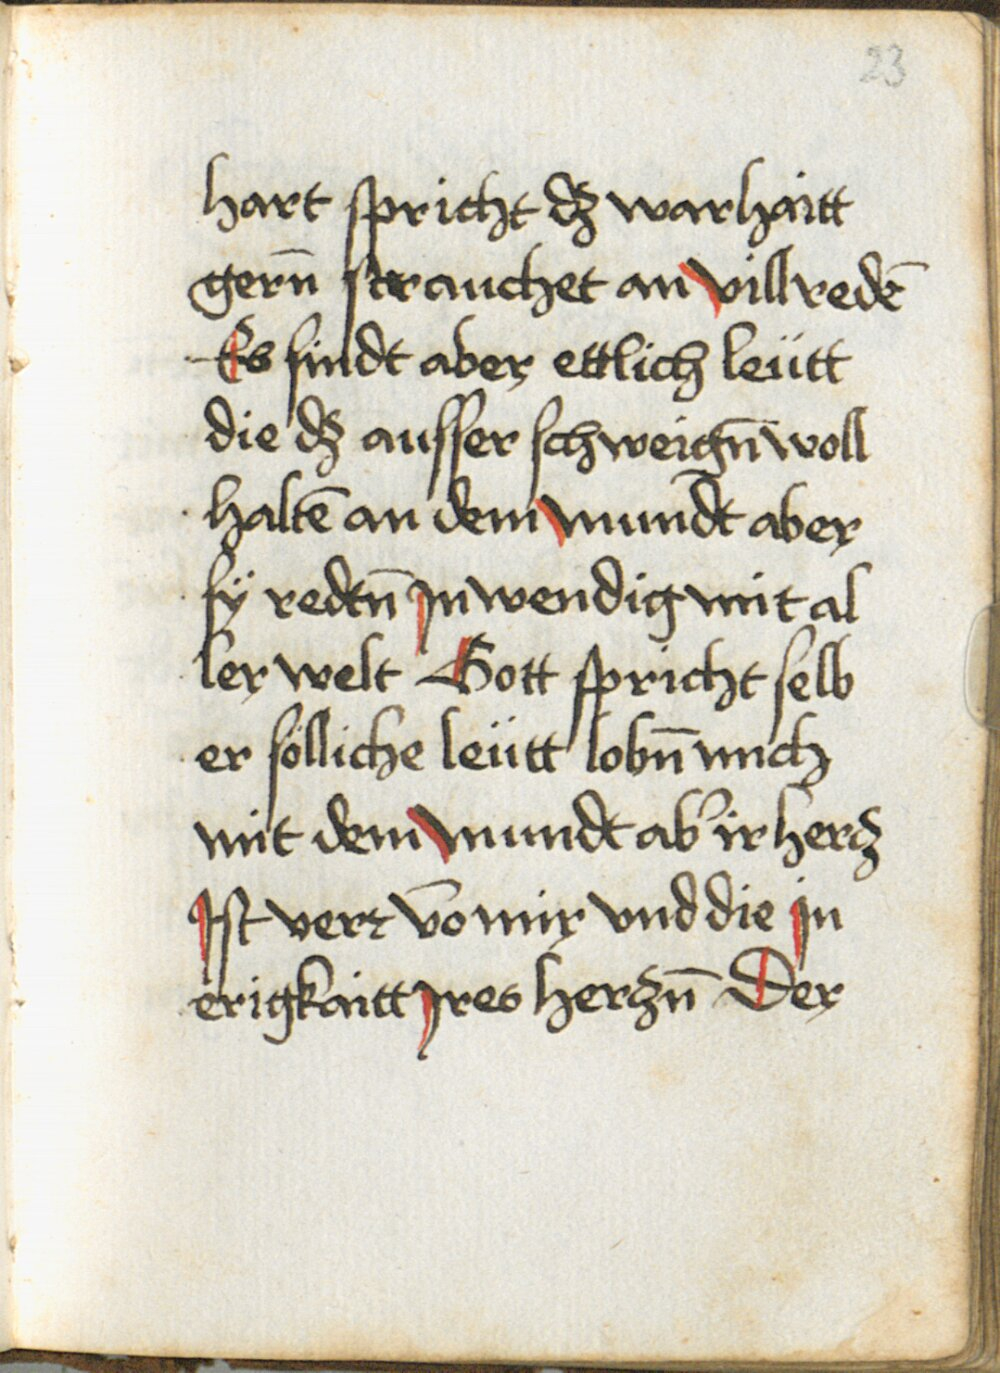 23
hart spricht dʒ warhaitt
gern̄ strauchet an vill redē
Es sindt aber ettlich leütt
die dʒ ausser schweign̄ woll
haltē an dem mundt aber
sÿ redtn̄ Jnwendig mit al
ler welt Gott spricht selb
er sölliche leütt lobn̄ mich
mit dem mundt ab' ir hercʒ
Jst verr vō mir vnd die jn
erigkaitt Jres herczn̄ Der